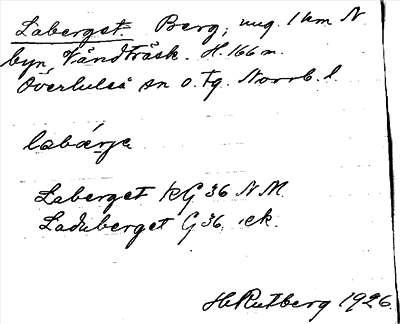 Laberget. Berg, ung. 1 km N
byn Våndträsk. H. 166 m.
Överluleå sn o. tg. Norrb. l.
labárje
Laberget KG 36 N.M.
Laduberget G 36, ek.
H. Rutberg 1926.